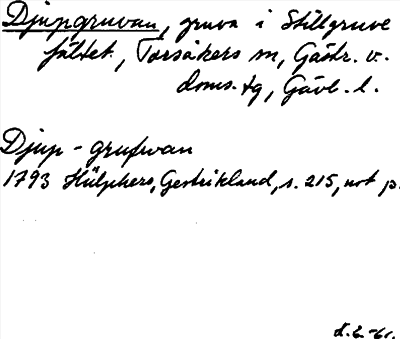 Djupgruvan, gruva i Stillgruve
fältet, Torsåkers sn, Gästr. v.
doms.tg, Gävl. l.
Djup-grufwan
1793 Hülphers, Gestrikland, s. 215, not p.